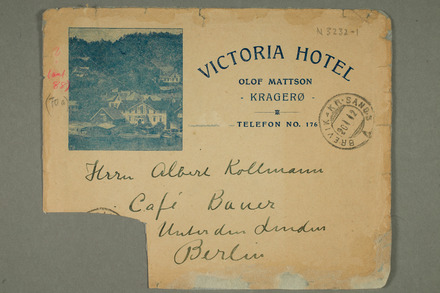 N 5232-1
VICTORIA HOTEL
OLOF MATTSON
- KRAGERØ -
TELEFON NO. 176
BREVIK-KR.SANDS
Herrn Albert Kollmann
Café Bauer
Unter den Linden
Berlin